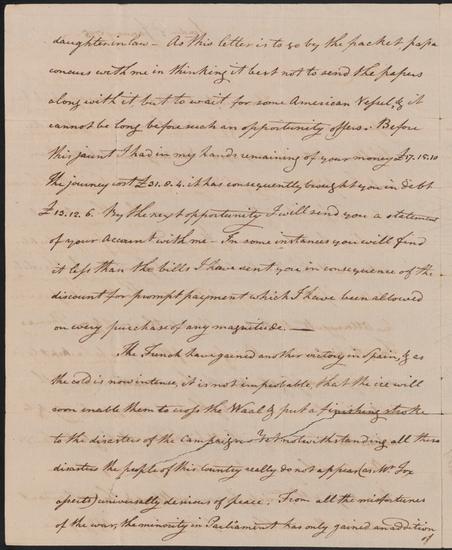 daughter in law – As this letter is to go by the packet papa
concurs with me in thinking it best not to send the papers
along with it but to wait for some American Vessel, & it
cannot be long before such an opportunity offers. Before
this jaunt I had in my hands remaining of your money £17.15.10
The journey cost £31.8.4. it has consequently brought you in debt
£13.12.6. By the next opportunity I will send you a statement
of your Account with me – In some instances you will find
it less than the bills I have sent you in consequence of the
discount for prompt payment which I have been allowed
on every purchase of any magnitude. —
The French have gained another victory in Spain, & as
the cold is now intense, it is not improbable, that the ice will
soon enable them to cross the Waal & put a finishing stroke
to the disasters of the Campaign. Yet notwithstanding all these
disasters the people of this Country really do not appear (as Mr. Fox
asserts) universally desirous of peace. From all the misfortunes
of the war, the minority in Parliament has only gained an addition
of